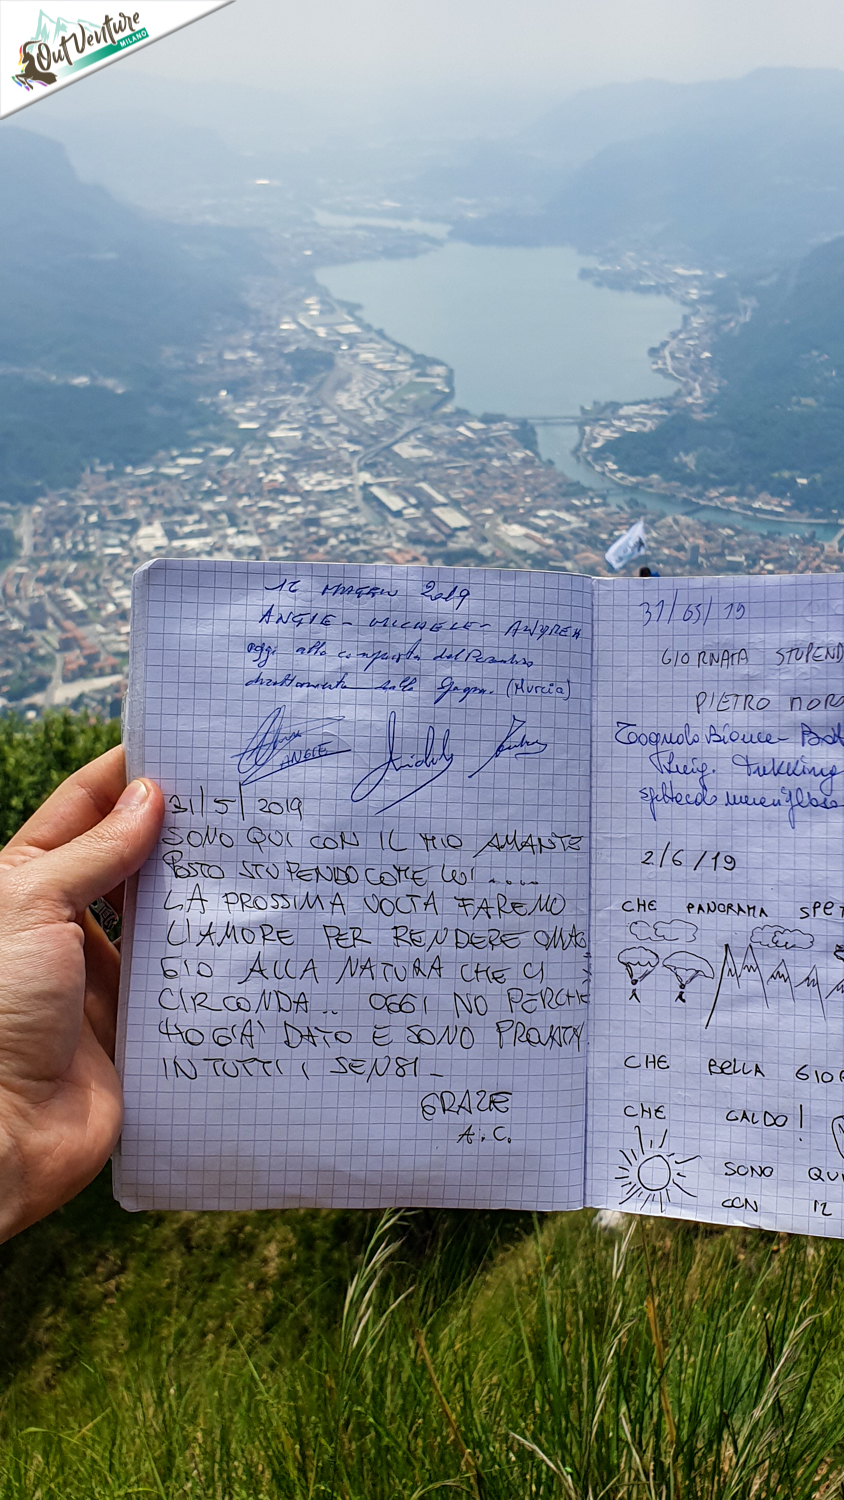 OutVenture
MILANO
2019
ANGIE - MICHELE - ANDREA
oggi alla conquista del
direttamente dalla (Murcia)
ANGIE
31/5/2019
SONO QUI CON IL MIO AMANTE
POSTO STUPENDO COME LUI.....
LA PROSSIMA VOLTA FAREMO
L'AMORE PER RENDERE OMAG
GIO ALLA NATURA CHE CI
CIRCONDA.. OGGI NO PERCHE
HO GIA' DATO E SONO PROVATA
IN TUTTI I SENSI -
GRAZIE
A.C.
31/05/19
GIORNATA STUPEND
PIETRO MORO
Bianca -
Trekking
spettacolo meraviglioso
2/6/19
CHE PANORAMA SPET
CHE BELLA GIOR
CHE CALDO!
SONO QUI
CON IL